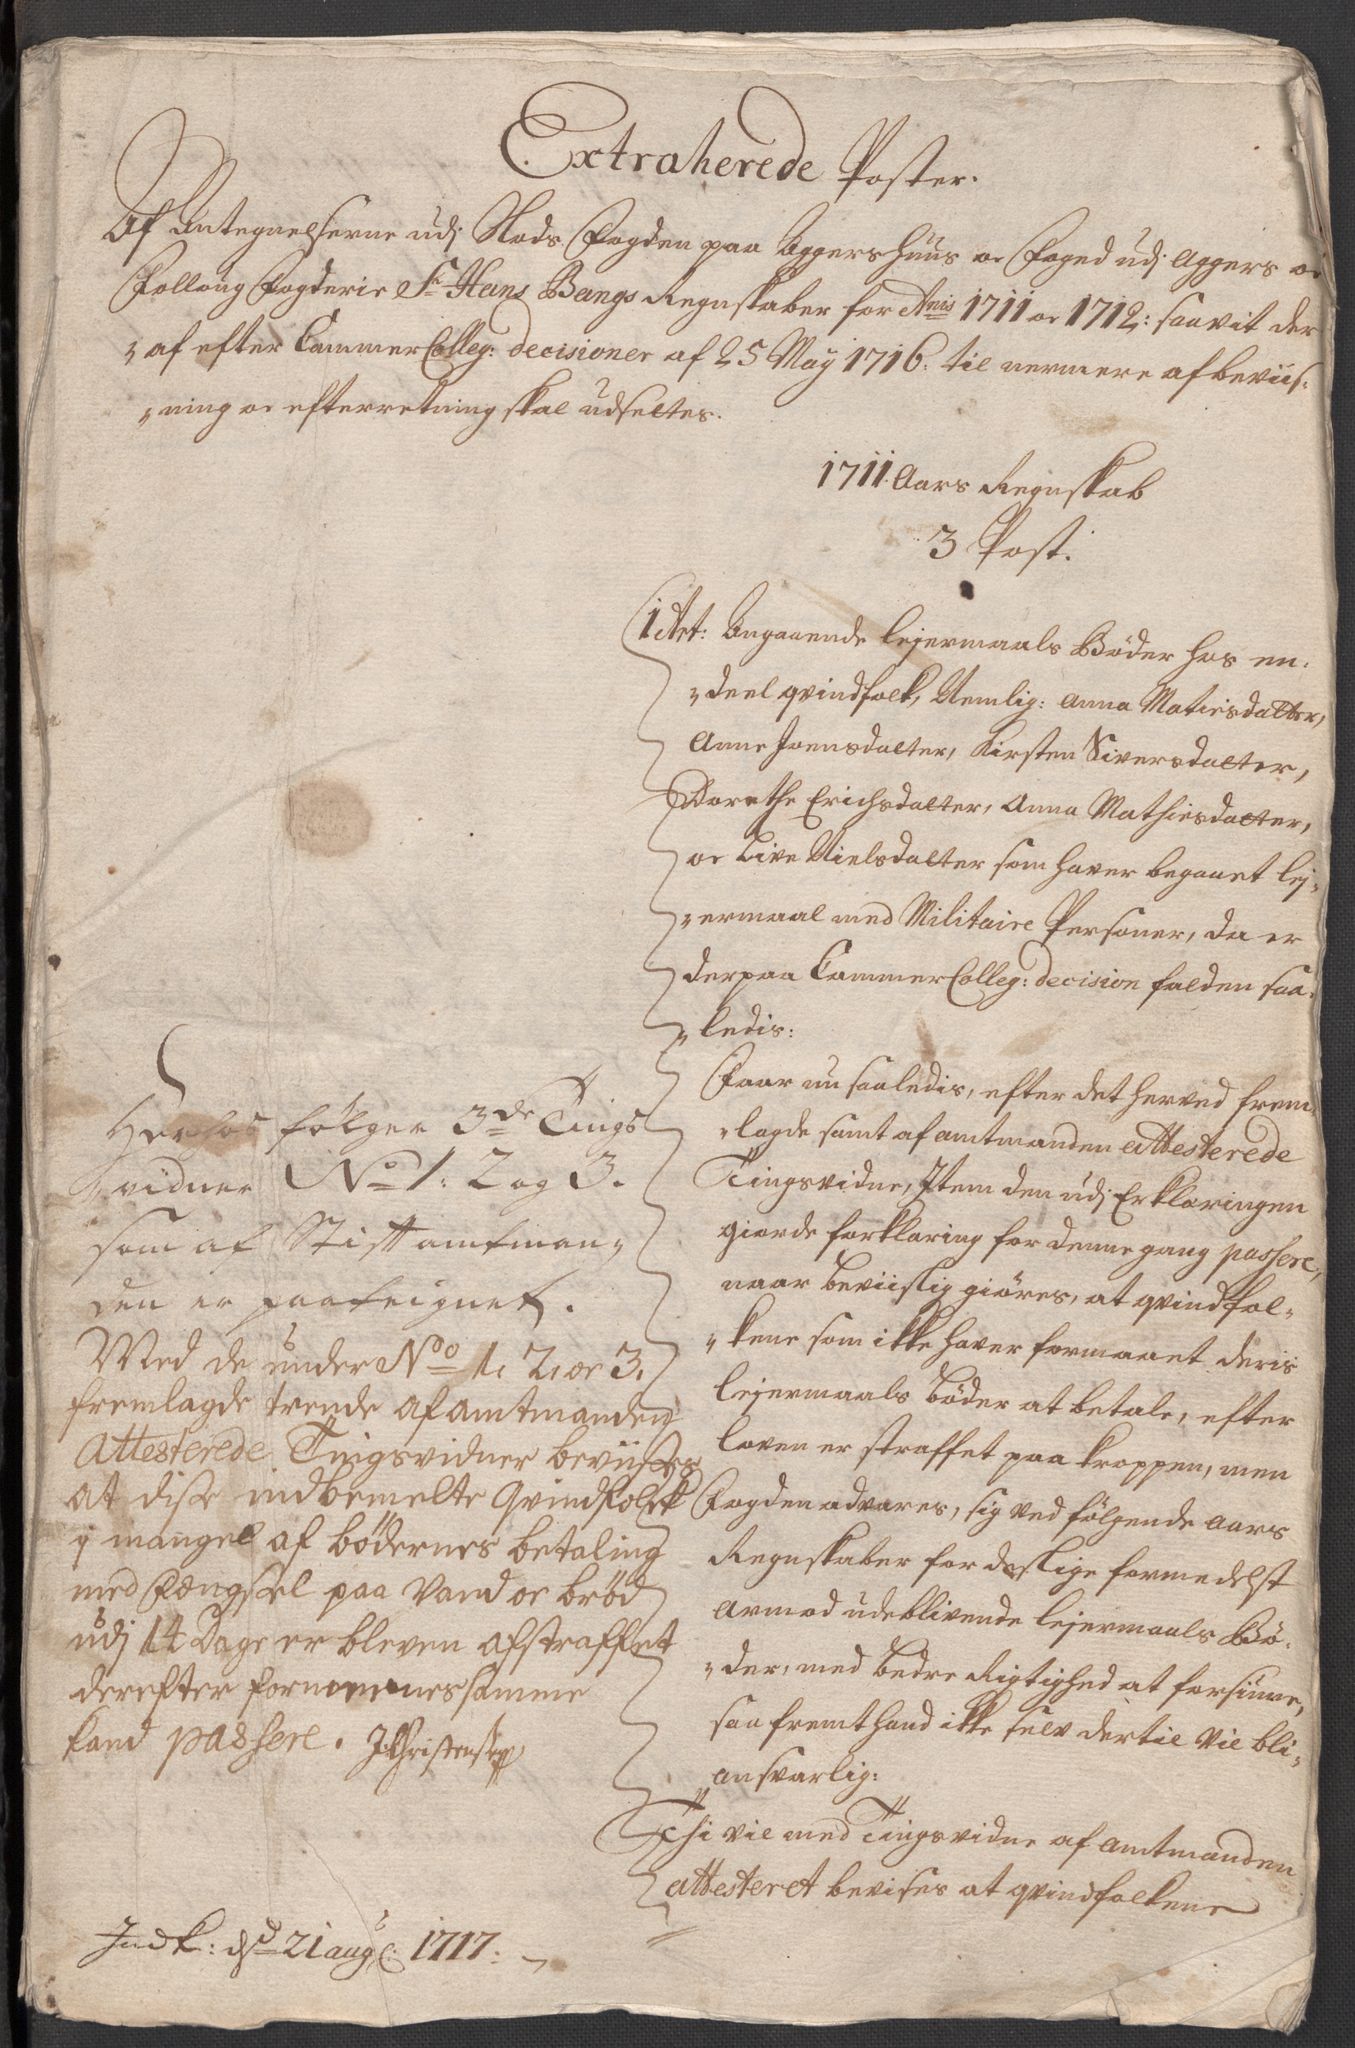 Extraherede Poster.
Af Antegnelserne udj Slods Fogden paa Aggershuus oc Foged udj Aggers oc
Folloug Fogderie Sr Hans Bangs Regnskaber for Anis 1711 oc 1712: saavit der
„af efter Cammer Colleg: decisioner af 25 May 1716. til nermere afbeviis-
„ning oc efterretning skal udsettes.
1711 Aars Regnskab
3 Post.
1 Art: Angaaende lejermaals Bøder hos en-
„deel qvindfolk, Nemlig: Anna Matiesdatter,
Anne Joensdatter, Kirsten Siversdatter,
Dorethe Erichsdatter, Anna Mathiesdatter,
oc Live Nielsdatter som haver begaaet lej-
„ermaal med Militaire Personer, da er
derpaa Cammer Colleg: decision falden saa-
„ledis:
Faar nu saaledis, efter det herved frem-
„lagde samt af amtmanden attesterede
Tingsvidne, Item den udj Erklaringen
giorde forklaring for denne gang passere,
naar beviislig giøres, at qvindfol-
„kene som ikke haver formaaet deris
lejermaals bøder at betale, efter
loven er straffet paa kroppen, men
Fogden advares, sig ved følgende Aars
Regnskaber for deslige formedelst
armod udeblivende lejermaals Bø-
„der, med bedre Rigtighed at forsiune,
saa fremt hand ikke selv dertil vil bli-
„ansvarlig:
Thi vil med Tingsvidne af amtmanden
attesteret bevises at qvindfolkene
Herhos følger 3de Tings
„vidner No 1: 2 og 3.
som af Stiftamtman-
den er paateignet.
Med de under No 1. 2. oc 3.
fremlagde trende af amtmanden
Attesterede Tingsvidner beviises
at disse indbemelte Qvindfolck
i mangel af bødernes betaling
med Fængsel paa Vand oc brød
udj 14 Dage er bleven afstraffet
derefter formenes samme
kand passere. J Christensen
Indk: dsd 21 aug: 1717.